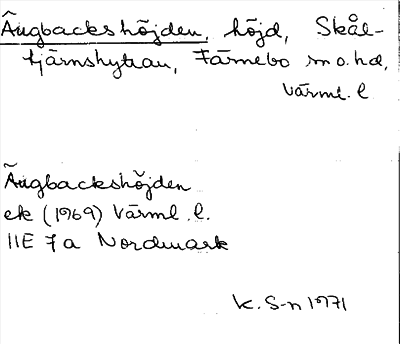 Ängbackshöjden, höjd, Skål-
tjärnshyttan, Färnebo sn o. hd,
Värml. l.
Ängbackshöjden
ek (1969) Värml. l.
11E 7a Nordmark
K. S-n 1971